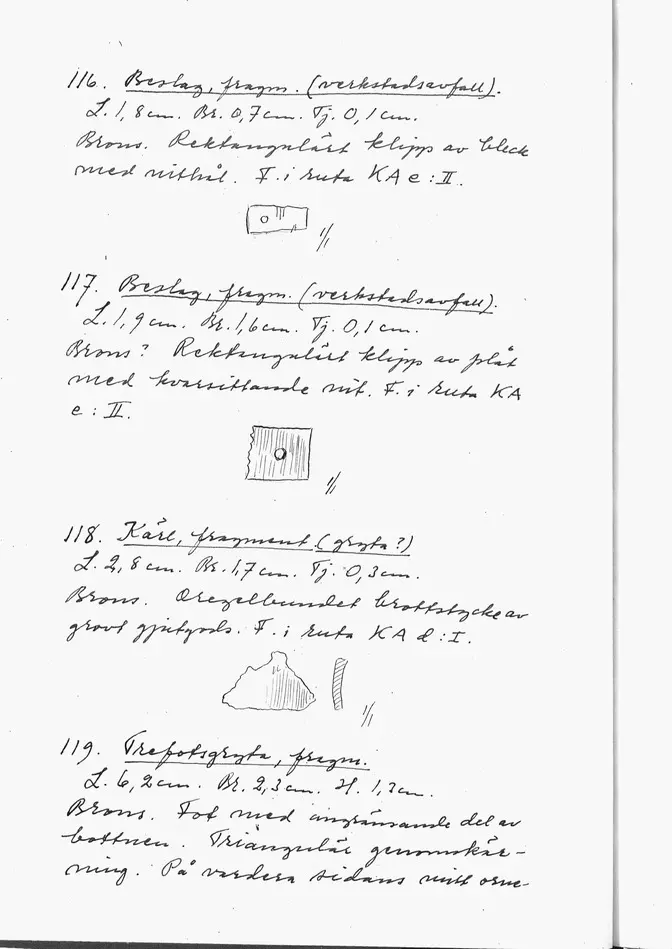 116. Beslag, fragm. (verkstadsavfall).
L. 1,8 cm. Br. 0,7 cm. Tj. 0,1 cm.
Brons. Rektangulärt klipp av bleck
med nithål. F. i ruta KA e : II.
1/1
117. Beslag, fragm. (verkstadsavfall).
L. 1,9 cm. Br. 1,6 cm. Tj. 0,1 cm.
Brons? Rektangulärt klipp av plåt
med kvarsittande nit. F. i ruta KA
e : II.
1/1
118. Kärl, fragment (gryta?)
L. 2,8 cm. Br. 1,7 cm. Tj. 0,3 cm.
Brons. Oregelbundet brottstycke av
grovt gjutgods. F. i ruta KA d : I.
1/1
119. Trefotsgryta, fragm.
L. 6,2 cm. Br. 2,3 cm. H. 1,3 cm.
Brons. Fot med angränsande del av
bottnen. Triangulär genomskär-
ning. På vardera sidans mitt orne-